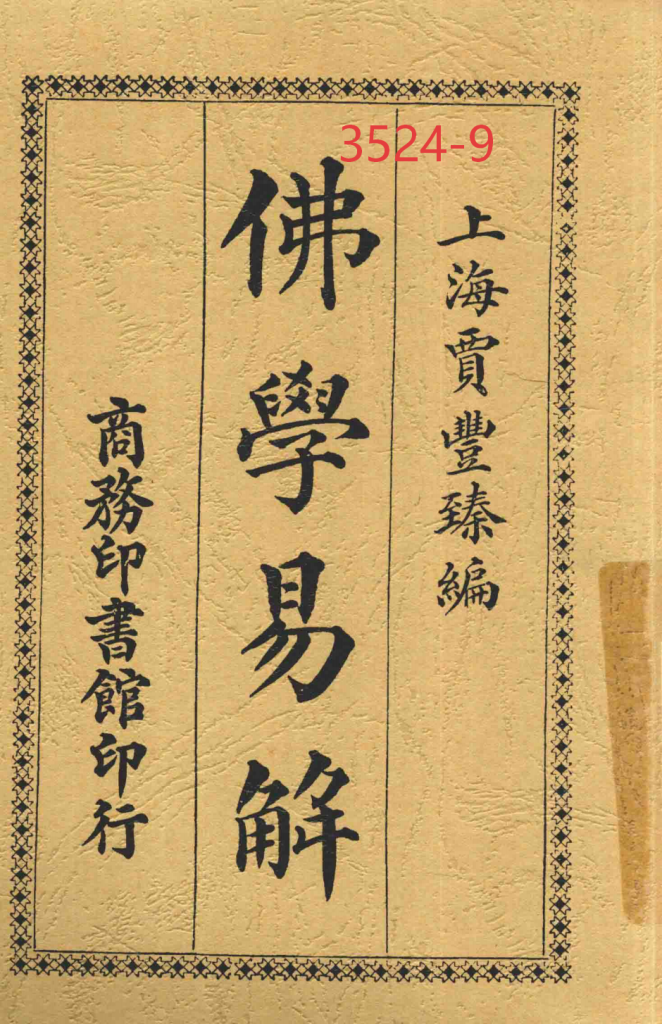 3524-9
上海賈豐臻編
佛學易解
商務印書館印行